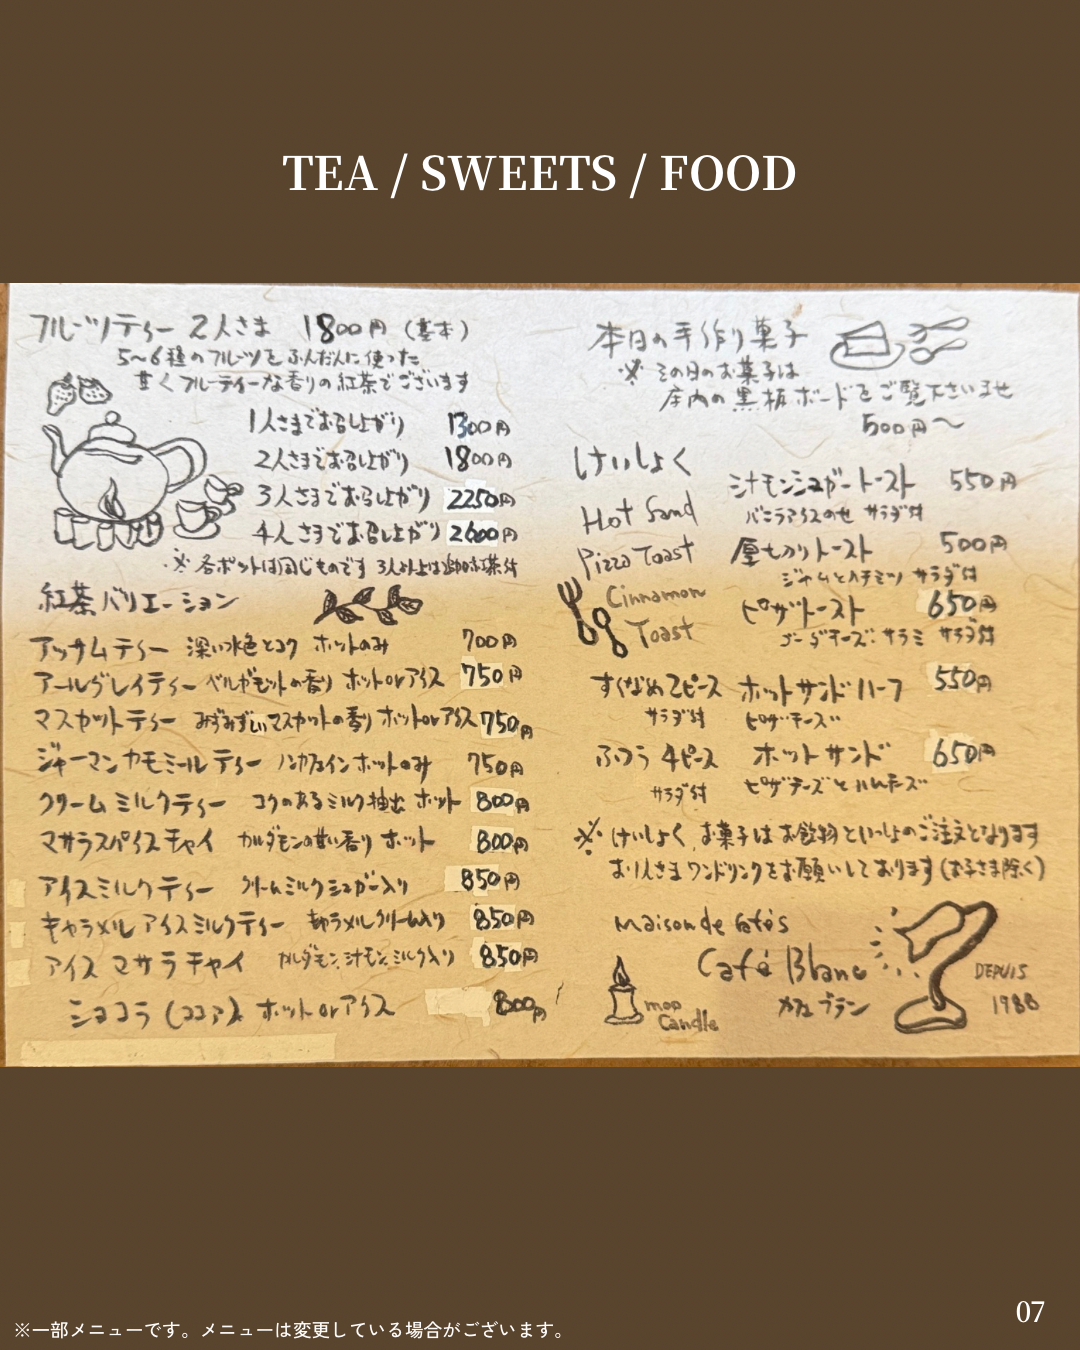 TEA / SWEETS / FOOD
フルーツティー 2人さま 1800円 (基本)
5〜6種のフルーツをふんだんに使った
甘くフルーティーな香りの紅茶でございます
1人さまでお召し上がり 1300円
2人さまでお召し上がり 1800円
3人さまでお召し上がり 2250円
4人さまでお召し上がり 2600円
※各ポットは同じものです 3人以上は追加紅茶付
紅茶バリエーション
アッサムティー 深い水色とコク ホットのみ 700円
アールグレイティー ベルガモットの香り ホットorアイス 750円
マスカットティー みずみずしいマスカットの香り ホットorアイス 750円
ジャーマンカモミールティー ノンカフェイン ホットのみ 750円
クリームミルクティー コクのあるミルク抽出 ホット 800円
マサラスパイスチャイ カルダモンの甘い香り ホット 800円
アイスミルクティー クリームミルクシュガー入り 850円
キャラメルアイスミルクティー キャラメルクリーム入り 850円
アイスマサラチャイ カルダモン、シナモン、ミルク入り 850円
ショコラ (ココア) ホットorアイス 800円
本日の手作り菓子
※その日のお菓子は
店内の黒板ボードをご覧下さいませ
500円〜
けいしょく
Hot Sand
Pizza Toast
Cinnamon
Toast
シナモンシュガートースト 550円
バニラアイスのせ サラダ付
厚切りトースト 500円
ジャムとハチミツ サラダ付
ピザトースト 650円
ゴーダチーズ:サラミ サラダ付
すくなめ 2ピース ホットサンドハーフ 550円
サラダ付 ピザチーズ
ふつう 4ピース ホットサンド 650円
サラダ付 ピザチーズとハムチーズ
※けいしょく、お菓子はお飲物といっしょのご注文となります
お1人さまワンドリンクをお願いしております(お子さま除く)
Maison de Cafés
Café Blanc
カフェブラン
mop
Candle
DEPUIS
1988
07
※一部メニューです。メニューは変更している場合がございます。